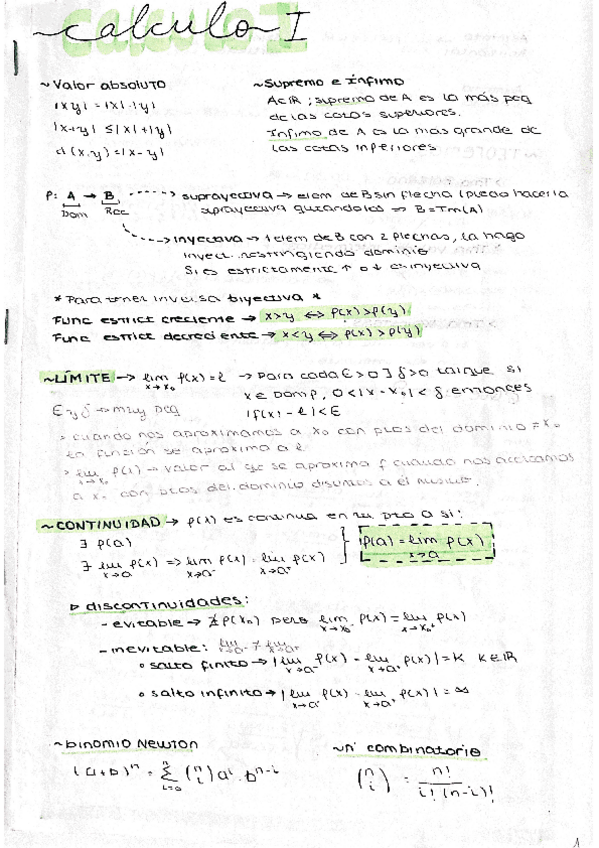 calculo I
~Valor absoluto
|xy| = |x|·|y|
|x+y| ≤ |x|+|y|
d(x,y) = |x-y|
~Supremo e ínfimo
A∈ℝ ; supremo de A es la más peq
de las cotas superiores.
Ínfimo de A es la mas grande de
las cotas inferiores
f: A → B
Dom Rec
suprayectiva → elem de B sin flecha (puedo hacerla
suprayectiva quitandolos => B=Im(A)
inyectiva → 1 elem de B con 2 flechas, la hago
inyect. restringiendo dominio
Si es estrictamente ↑ o ↓ es inyectiva
* Para tener inversa biyectiva *
Func estrict creciente → x>y <=> f(x)>f(y)
Func estrict decreciente → x<y <=> f(x)>f(y)
~LÍMITE → lim x→x₀ f(x)=ℓ → Para cada ε>0 ∃ δ>0 tal que si
x ∈ Dom f, 0<|x-x₀|<δ entonces
ε y δ → muy peq
|f(x)-ℓ|<ε
> cuando nos aproximamos a x₀ con ptos del dominio ≠x₀
la función se aproxima a ℓ
> lim x→x₀ f(x) → valor al que se aproxima f cuando nos acercamos
a x₀ con ptos del dominio distintos a él mismo.
~CONTINUIDAD → f(x) es continua en un pto a si:
∃ f(a)
∃ lim x→a f(x) => lim x→a⁻ f(x) = lim x→a⁺ f(x)
f(a) = lim x→a f(x)
▷ discontinuidades:
- evitable → ∄ f(x₀) pero lim x→x₀⁻ f(x) = lim x→x₀⁺ f(x)
- inevitable: lim x→a⁻ ≠ lim x→a⁺
° salto finito → |lim x→a⁻ f(x) - lim x→a⁺ f(x)| = K K∈ℝ
° salto infinito → |lim x→a⁻ f(x) - lim x→a⁺ f(x)| = ∞
~binomio Newton
(a+b)ⁿ = Σ i=0 n (n i) aⁱ · bⁿ⁻ⁱ
~nº combinatorio
(n i) = n! / i!(n-i)!
1